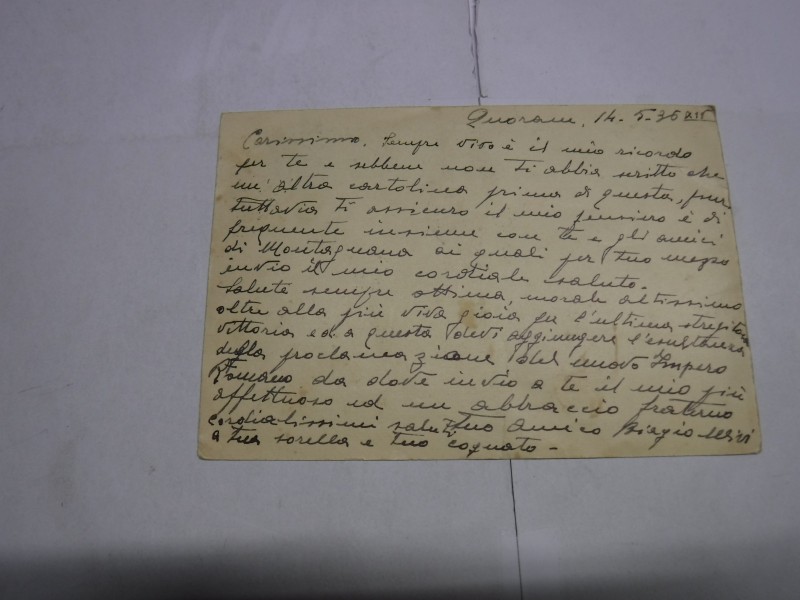 Quoram, 14-5-36 XIV
Carissimo. Sempre vivo è il mio ricordo
per te e sebbene non ti abbia scritto che
un'altra cartolina prima di questa, pur
tuttavia ti assicuro il mio pensiero è di
frequente insieme con te e gli amici
di Montagnana ai quali per tuo mezzo
invio il mio cordiale saluto.
Salute sempre ottima, morale altissimo
oltre alla più viva gioia per l'ultima strepitosa
vittoria ed a questa devi aggiungere l'esultanza
della proclamazione del nuovo Impero
Romano da dove invio a te il mio più
affettuoso ed un abbraccio fraterno
cordialissimi saluti tuo amico Biagio
a tua sorella e tuo cognato -